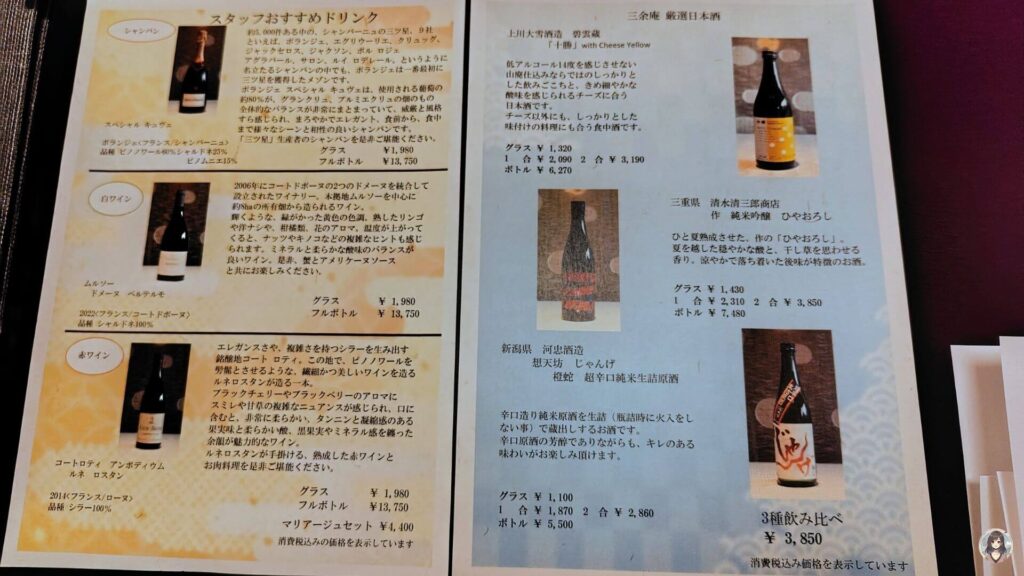 スタッフおすすめドリンク
シャンパン
約5,000件ある中の、シャンパーニュの三ツ星、9社
といえば、ボランジェ、エグリウーリエ、クリュッグ、
ジャックセロス、ジャクソン、ポル ロジェ
アグラパール、サロン、ルイ ロデレール、というように
名立たるシャンパンの中でも、ボランジェは一番最初に
三ツ星を獲得したメゾンです。
ボランジェ スペシャル キュヴェは、使用される葡萄の
約80%が、グランクリュ、プルミエクリュの畑のもの
全体的なバランスが非常にまとまっていて、威厳と風格
すら感じられ、まろやかでエレガント、食前から、食中
まで様々なシーンと相性の良いシャンパンです。
「三ツ星」生産者のシャンパンを是非ご堪能ください。
スペシャル キュヴェ
ボランジェ<フランス/シャンパーニュ>
品種 ピノノワール60%シャルドネ25%
ピノムニエ15%
グラス ￥1,980
フルボトル ￥13,750
白ワイン
2006年にコートドボーヌの2つのドメーヌを統合して
設立されたワイナリー。本拠地ムルソーを中心に
約8haの所有畑から造られるワイン。
輝くような、緑がかった黄色の色調、熟したリンゴ
や洋ナシや、柑橘類、花のアロマ、温度が上がって
くると、ナッツやキノコなどの複雑なヒントも感じ
られます。ミネラルと柔らかな酸味のバランスが
良いワイン。是非、蟹とアメリケーヌソース
と共にお楽しみください。
ムルソー
ドメーヌ ベルテルモ
2022<フランス/コートドボーヌ>
品種 シャルドネ100%
グラス ￥ 1,980
フルボトル ￥ 13,750
赤ワイン
エレガンスさや、複雑さを持つシラーを生み出す
銘醸地コート ロティ。この地で、ピノノワールを
彷彿とさせるような、繊細かつ美しいワインを造る
ルネロスタンが造る一本。
ブラックチェリーやブラックベリーのアロマに
スミレや甘草の複雑なニュアンスが感じられ、口に
含むと、非常に柔らかい、タンニンと凝縮感のある
果実味と柔らかい酸、黒果実やミネラル感を纏った
余韻が魅力的なワイン。
ルネロスタンが手掛ける、熟成した赤ワインと
お肉料理を是非ご堪能ください。
コートロティ アンポディウム
ルネ ロスタン
2014<フランス/ローヌ>
品種 シラー100%
グラス ￥ 1,980
フルボトル ￥13,750
マリアージュセット ￥4,400
消費税込みの価格を表示しています
三余庵 厳選日本酒
上川大雪酒造 碧雲蔵
「十勝」with Cheese Yellow
低アルコール14度を感じさせない
山廃仕込みならではのしっかりと
した飲みごこちと、きめ細やかな
酸味を感じられるチーズに合う
日本酒です。
チーズ以外にも、しっかりとした
味付けの料理にも合う食中酒です。
グラス ￥ 1,320
1 合 ￥ 2,090 2 合 ￥ 3,190
ボトル ￥ 6,270
三重県 清水清三郎商店
作 純米吟醸 ひやおろし
ひと夏熟成させた、作の「ひやおろし」。
夏を越した穏やかな酸と、干し草を思わせる
香り、涼やかで落ち着いた後味が特徴のお酒。
グラス ￥ 1,430
1 合 ￥ 2,310 2 合 ￥ 3,850
ボトル ￥ 7,480
新潟県 河忠酒造
想天坊 じゃんげ
橙蛇 超辛口純米生詰原酒
辛口造り純米原酒を生詰（瓶詰時に火入をし
ない事）で蔵出しするお酒です。
辛口原酒の芳醇でありながらも、キレのある
味わいがお楽しみ頂けます。
グラス ￥ 1,100
1 合 ￥ 1,870 2 合 ￥ 2,860
ボトル ￥ 5,500
じゃんげ
3種飲み比べ
￥ 3,850
消費税込み価格を表示しています